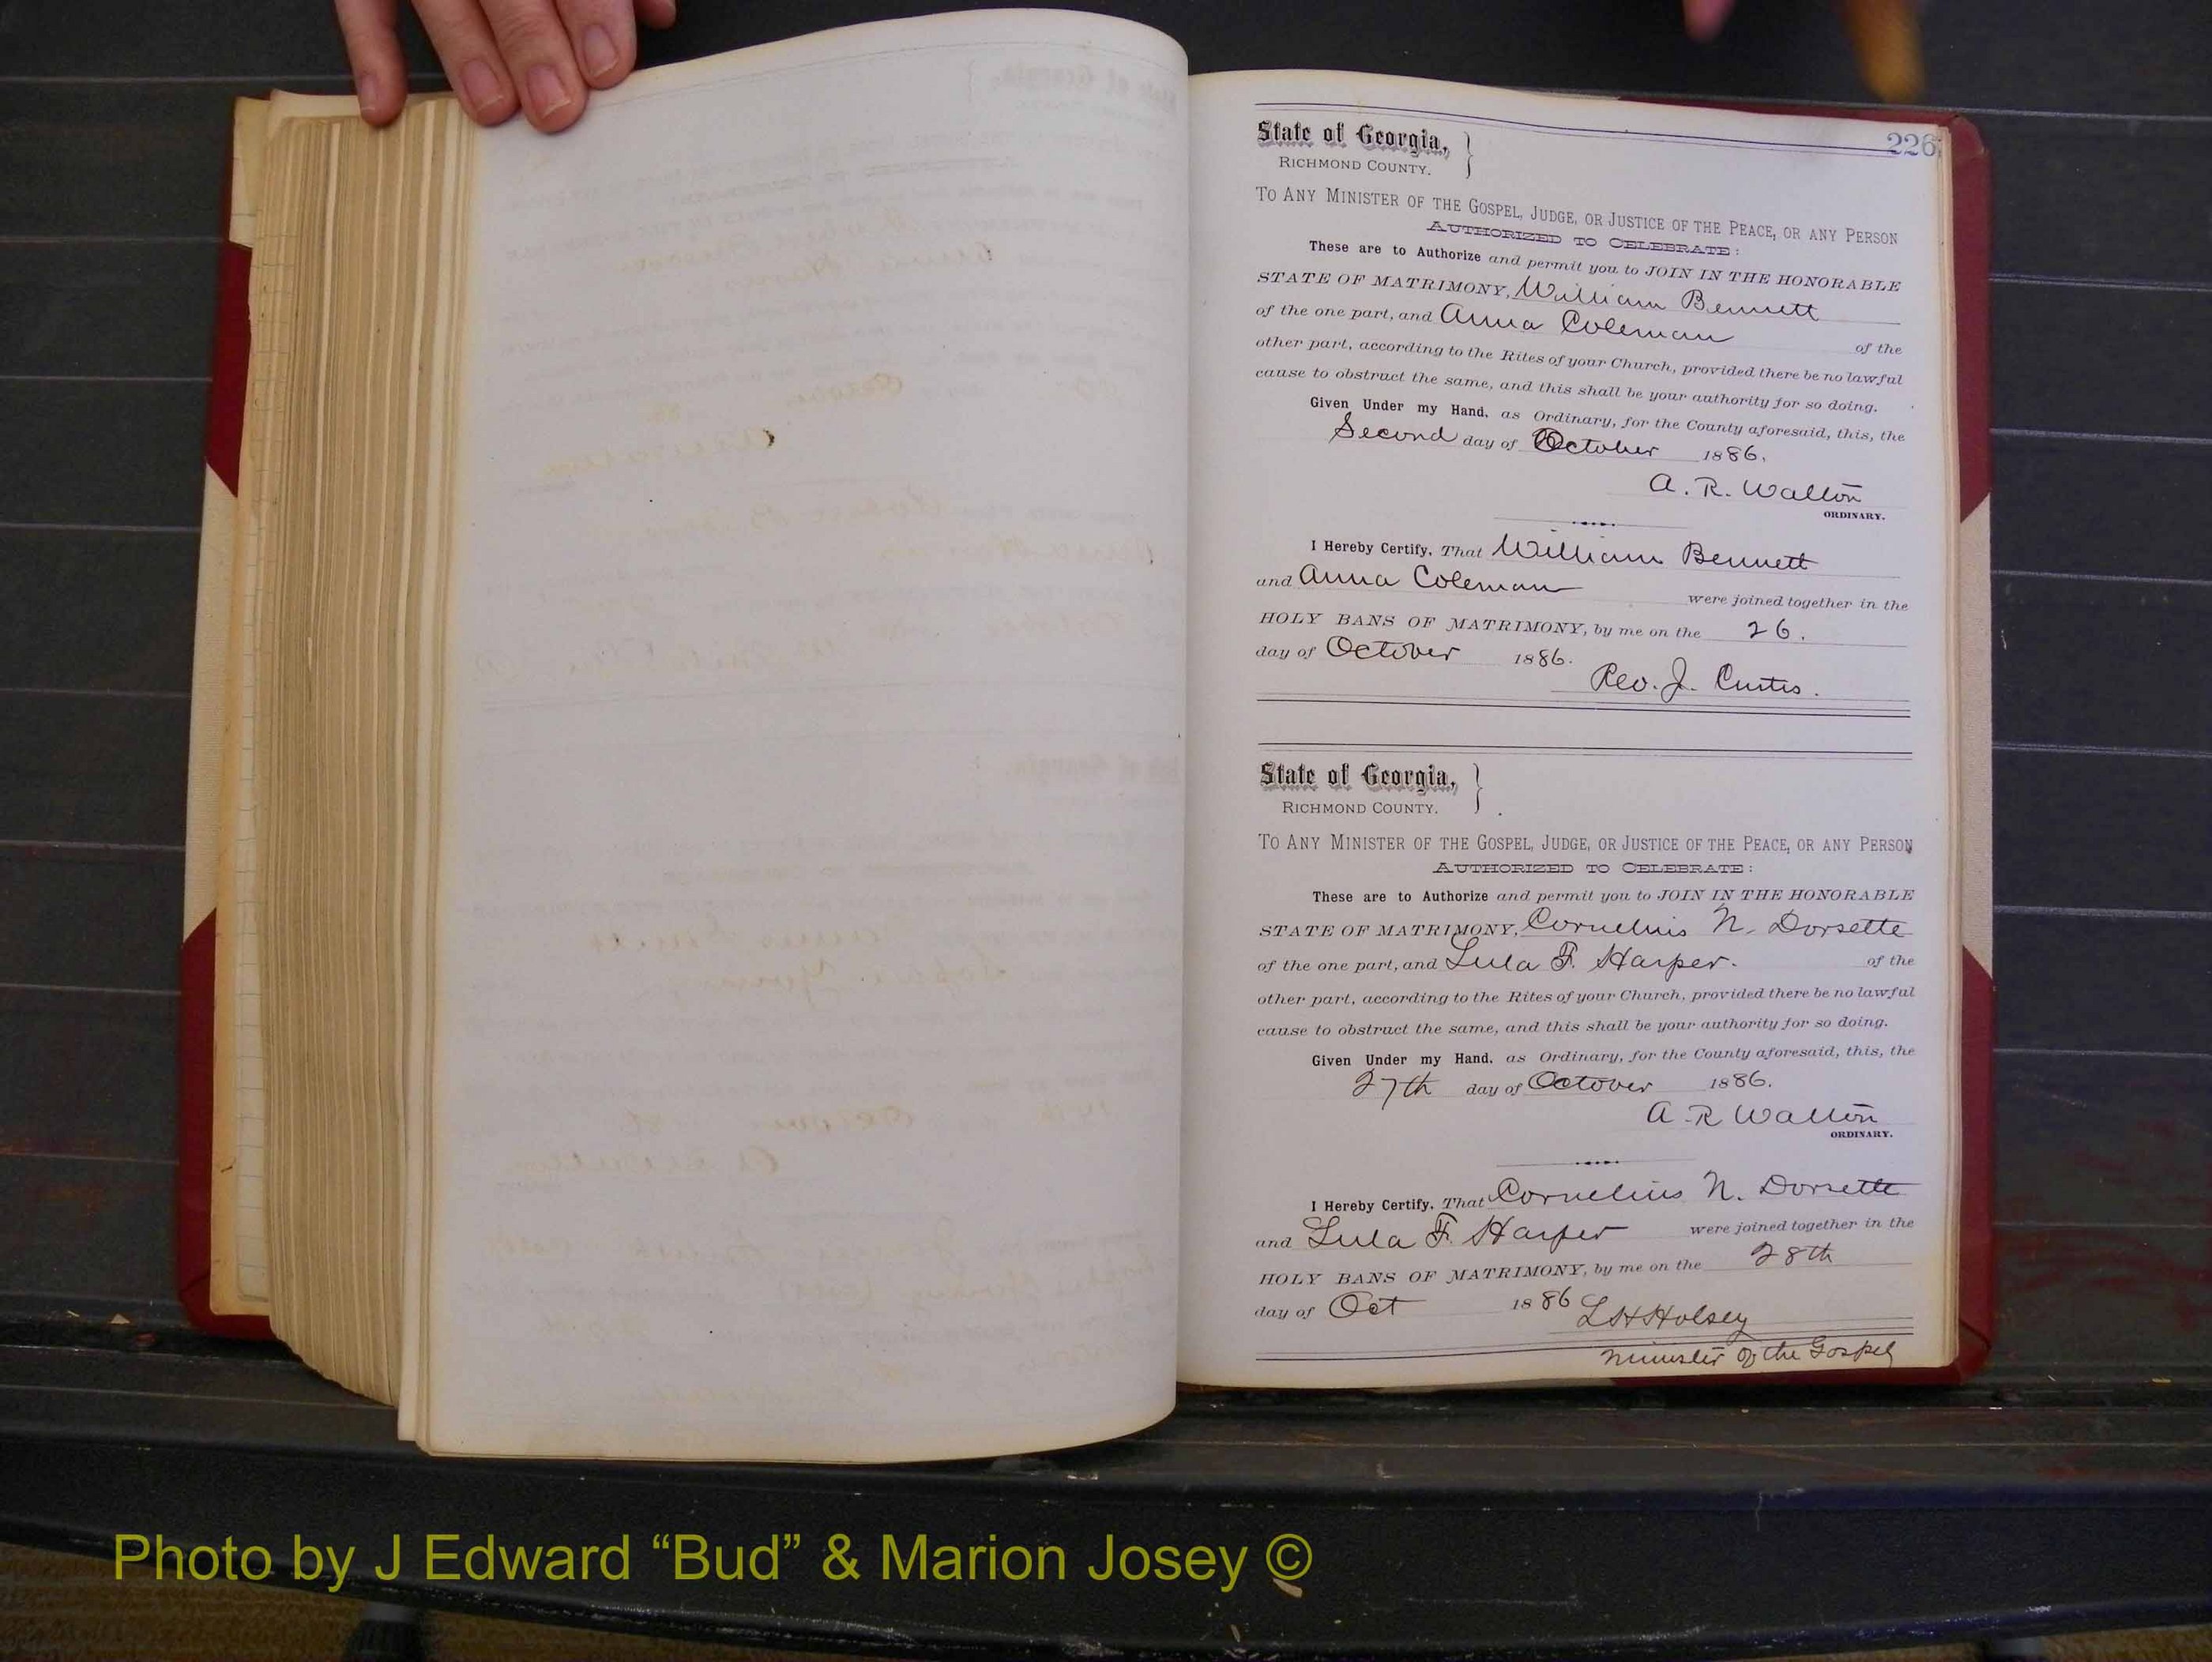 226
State of Georgia, }
RICHMOND COUNTY.
TO ANY MINISTER OF THE GOSPEL, JUDGE, OR JUSTICE OF THE PEACE, OR ANY PERSON
AUTHORIZED TO CELEBRATE:
These are to Authorize and permit you to JOIN IN THE HONORABLE
STATE OF MATRIMONY, William Bennett
of the one part, and Anna Coleman of the
other part, according to the Rites of your Church, provided there be no lawful
cause to obstruct the same, and this shall be your authority for so doing.
Given Under my Hand, as Ordinary, for the County aforesaid, this, the
Second day of October 1886.
A. R. Walton
ORDINARY.
I Hereby Certify, That William Bennett
and Anna Coleman were joined together in the
HOLY BANS OF MATRIMONY, by me on the 26.
day of October 1886.
Rev. J. Curtis.
State of Georgia, }
RICHMOND COUNTY.
TO ANY MINISTER OF THE GOSPEL, JUDGE, OR JUSTICE OF THE PEACE, OR ANY PERSON
AUTHORIZED TO CELEBRATE:
These are to Authorize and permit you to JOIN IN THE HONORABLE
STATE OF MATRIMONY, Cornelius N. Dorsette
of the one part, and Lula F. Harper. of the
other part, according to the Rites of your Church, provided there be no lawful
cause to obstruct the same, and this shall be your authority for so doing.
Given Under my Hand, as Ordinary, for the County aforesaid, this, the
27th day of October 1886.
A. R Walton
ORDINARY.
I Hereby Certify, That Cornelius N. Dorsette
and Lula F. Harper were joined together in the
HOLY BANS OF MATRIMONY, by me on the 28th
day of Oct 1886 L H Holsey
Minister of the Gospel
Photo by J Edward “Bud” & Marion Josey ©